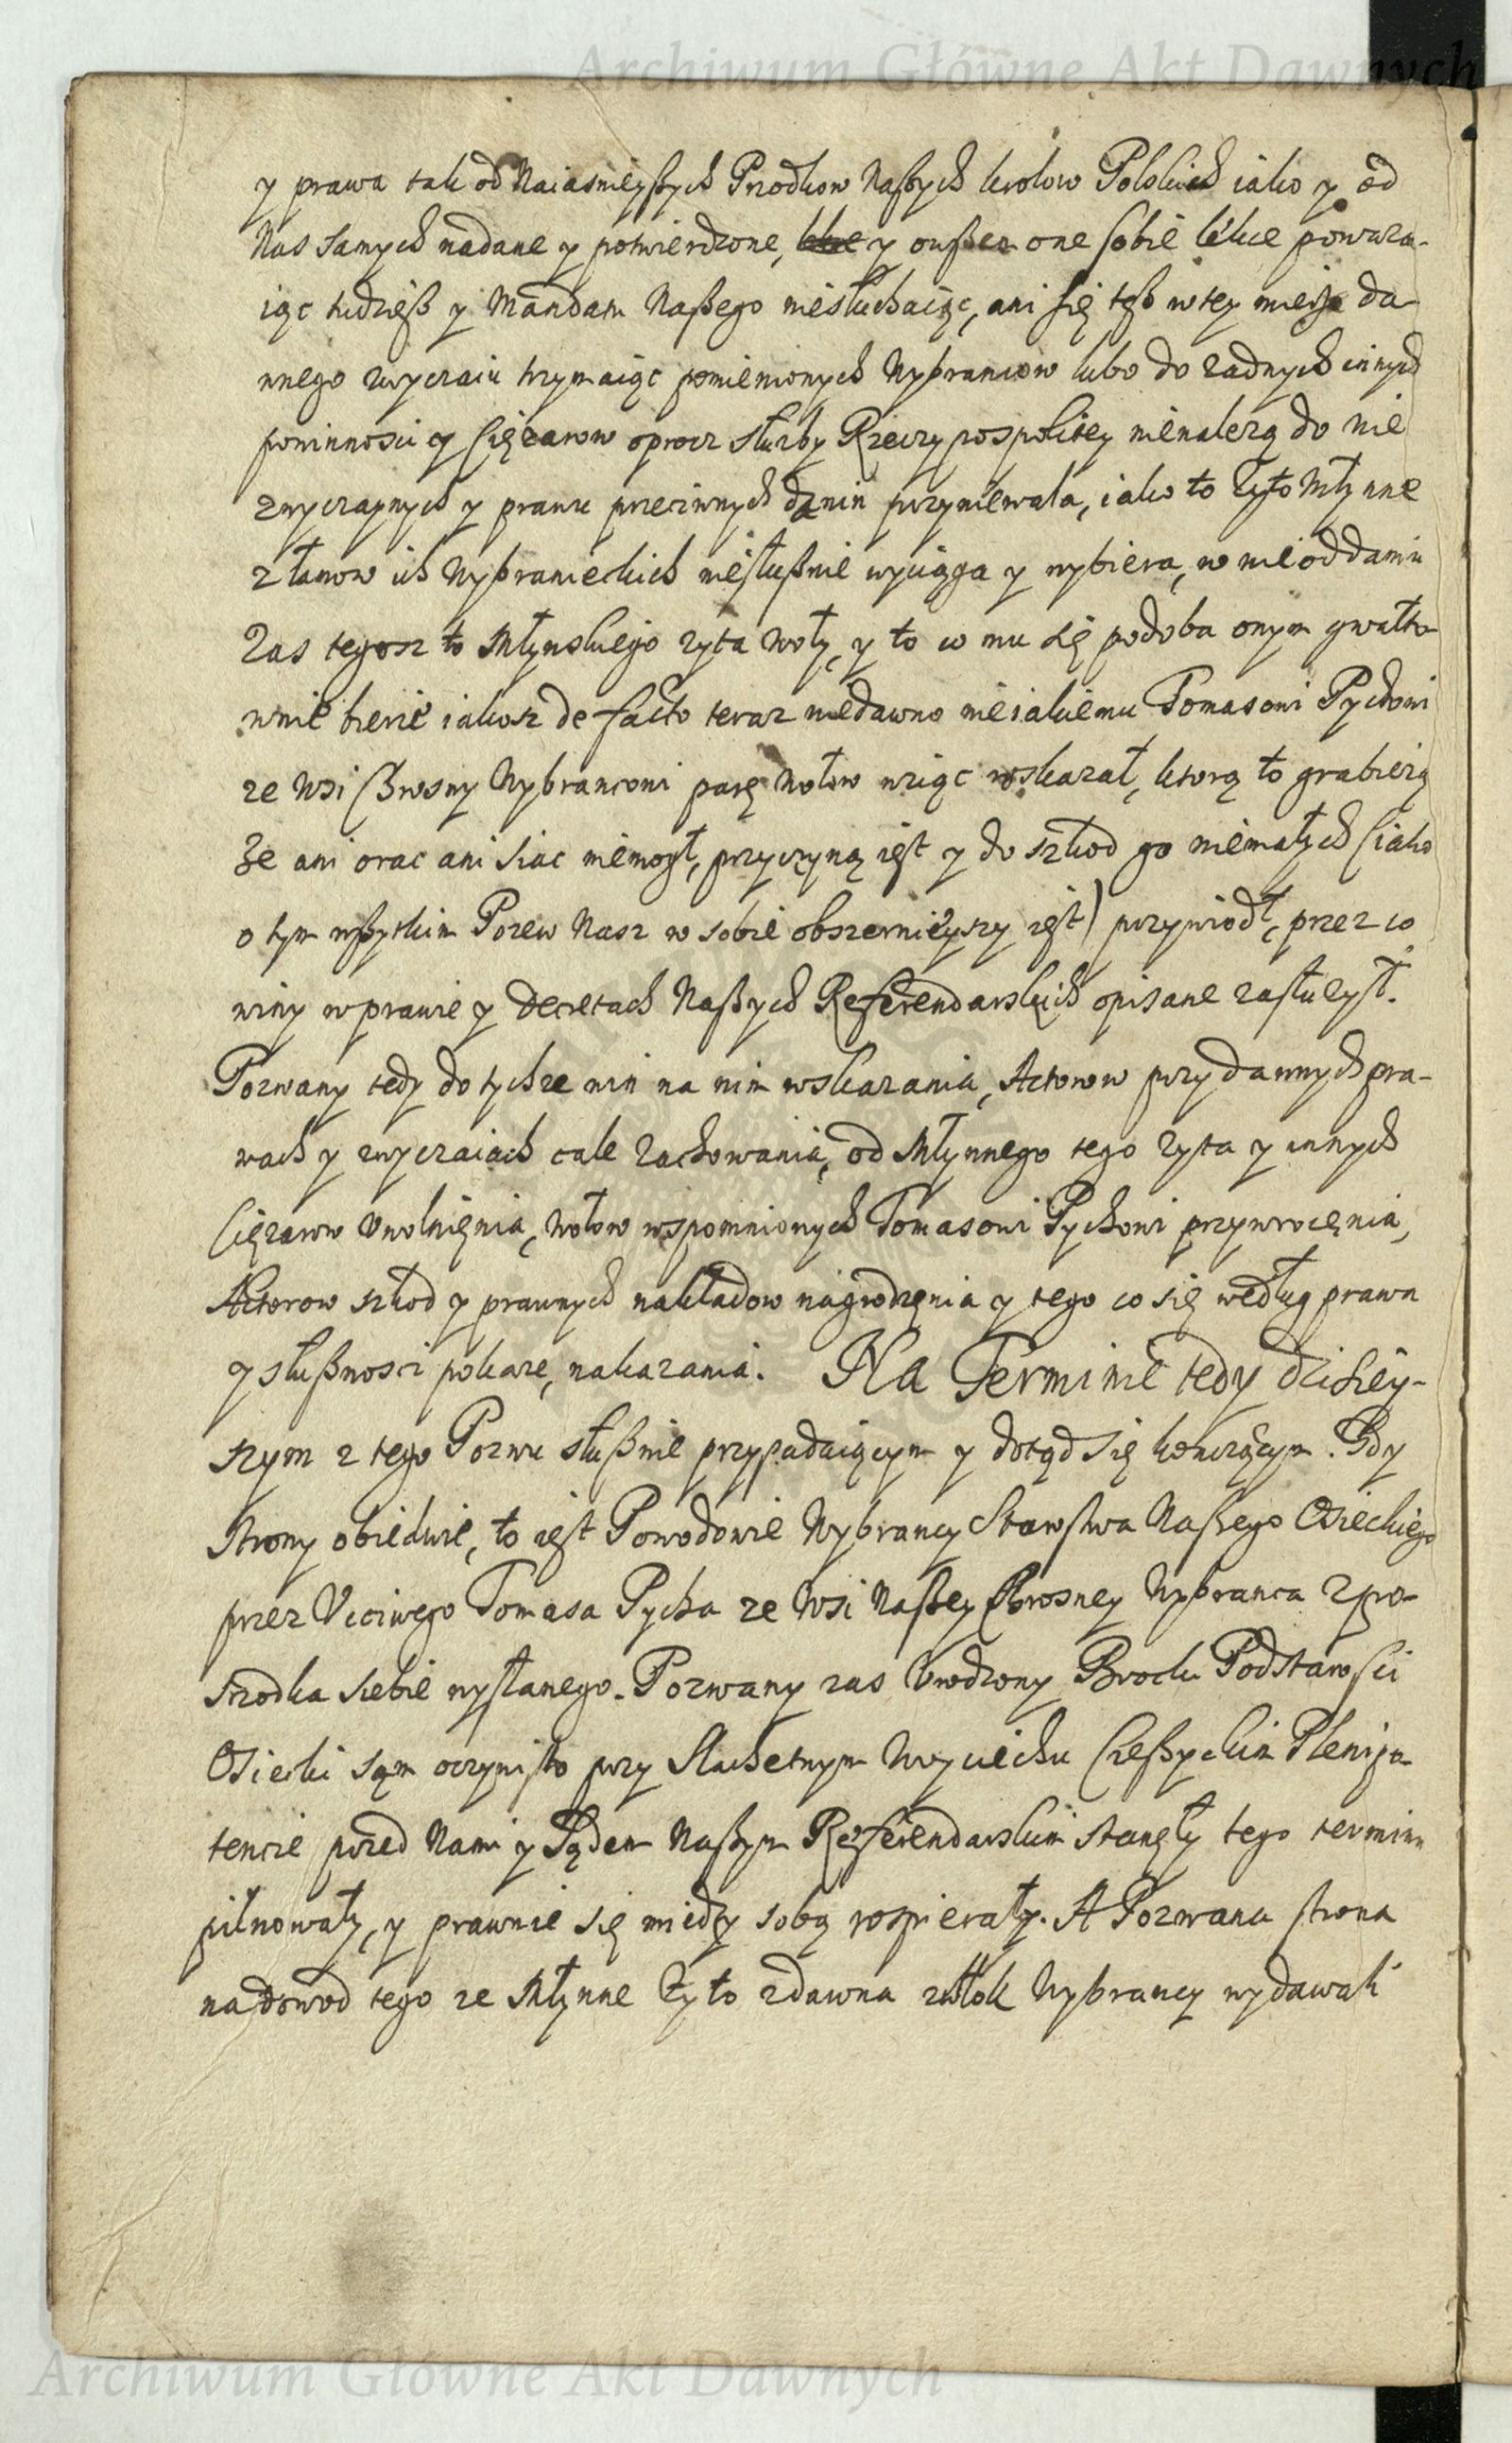 Archiwum Główne Akt Dawnych
y prawa tak od Naiasnieyszych Przodkow Naszych krolow Polskich iako y od
Nas samych nadane y potwierdzone, y owszem one sobie lekce powaza-
iąc tudziesz y Mandatu Naszego niesłuchaiąc, ani się tesz w tey mierze da-
wnego zwyczaiu trzymaiąc pomienionych Wybrancow lubo do zadnych innych
powinnosci y Cięzarow oprocz słuzby Rzeczypospolitey nienalezą do nie
zwyczaynych y prawu przeciwnych danin przyniewala, iako to Zyto Młynne
z łanow ich Wybranieckich niesłusznie wyciąga y wybiera, w nieoddaniu
Zas tegosz to Młynskiego zyta woły, y to co mu się podoba onym gwałto-
wnie bierze iakosz de facto teraz niedawno nieiakiemu Tomasowi Pychowi
ze Wsi Brosny Wybrancowi parę Wołow wziąc wskazał, ktorą to grabiezą
Ze ani orac ani siac niemogł, przyczyną iest y do szkod go niemałych (iako
o tym wszytkim Pozew Nasz w sobie obszernieyszy iest) przywiodł, przez co
winy w prawie y Decretach Naszych Referendarskich opisane zasłuzył.
Pozwany tedy do tychze win na nim wskazania, Actorow przy dawnych pra-
wach y zwyczaiach cale zachowania, od Młynnego tego zyta y innych
Cięzarow Uwolnięnia, Wołow wspomnionych Tomasowi Pychowi przywrocęnia,
Actorow szkod y prawnych nakładow nagrodzęnia y tego co się według prawa
y słusznosci pokaze, nakazania. Na Terminie tedy dzisiey-
szym z tego Pozwu słusznie przypadaiącym y dotąd się konczącym. Gdy
Strony obiedwie, to iest Powodowie Wybrancy Starostwa Naszego Osieckiego
przez Ucciwego Tomasa Pycha ze Wsi Naszey Brosney Wybranca z po-
srzodka siebie wysłanego. Pozwany zas Urodzony Brocki Podstarosci
Osiecki sąm oczywisto przy Slachetnym Woyciechu Cieszyckim Plenipo-
tencie przed Nami y Sądem Naszym Referendarskim stanęły tego terminu
pilnowały, y prawnie się miedzy sobą rospierały. A Pozwana strona
na dowod tego ze Młynne Zyto zdawna z włok Wybrancy wydawali
Archiwum Główne Akt Dawnych